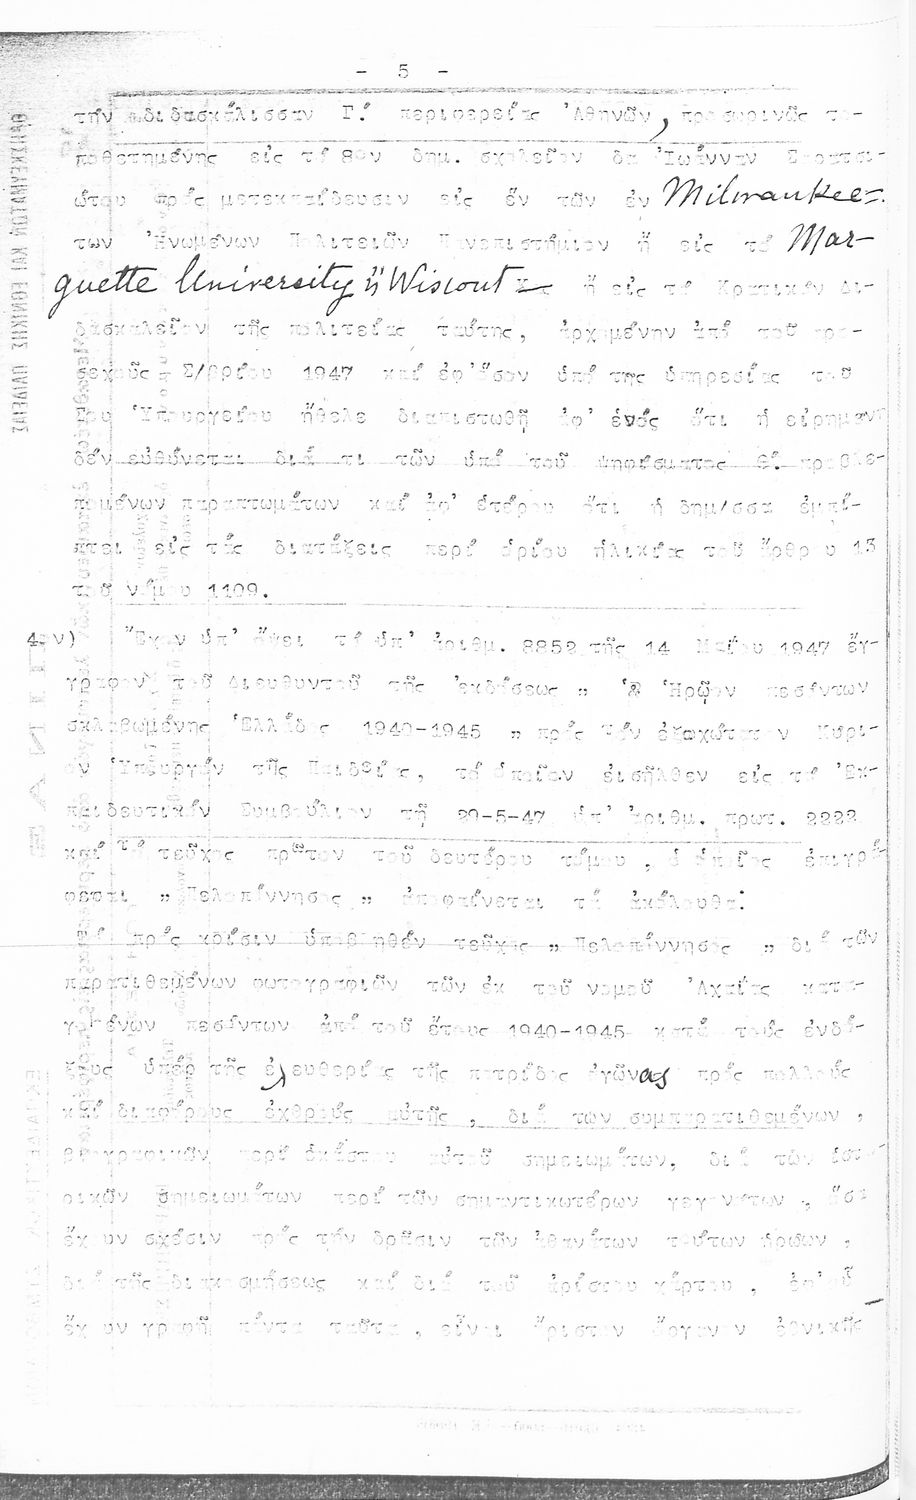 - 5 -
τήν διδασκάλισσαν Γ΄ περιφερείας Ἀθηνῶν, προσωρινῶς το-
ποθετημένης εἰς τό 8ον δημ. σχολεῖον δα Ἰωάνναν
πρός μετεκπαίδευσιν εἰς ἕν τῶν ἐν Milwaukee-
των Ἡνωμένων Πολιτειῶν Πανεπιστήμιον ἤ εἰς τό Mar-
guette University ἤ Wiscont- ἤ εἰς τό Κρατικόν Δι-
δασκαλεῖον τῆς πολιτείας ταύτης, ἀρχομένην ἀπό τοῦ προ-
σεχοῦς Σ/βρίου 1947 καί ἐφ' ὅσον ὑπό της ὑπηρεσίας τοῦ
Σου Ὑπουργείου ἤθελε διαπιστωθῆ ἀφ' ἑνός ὅτι ἡ εἰρημένη
δέν εὐθύνεται διά τι τῶν ὑπό τοῦ ψηφίσματος Θ΄ προβλε-
πομένων παραπτωμάτων καί ἀφ' ἑτέρου ὅτι ἡ δημ/σσα ἐμπί-
πτει εἰς τάς διατάξεις περί ὁρίου ἡλικίας τοῦ ἄρθρου 13
τοῦ νόμου 1109.
4ον) Ἔχον ὑπ' ὄψει τό ὑπ' ἀριθμ. 8852 τῆς 14 Μαΐου 1947 ἔγ-
γραφον τοῦ Διευθυντοῦ τῆς ἐκδόσεως " Ἡρῷον πεσόντων
σκλαβωμένης Ἑλλάδος 1940-1945 " πρός τόν ἐξοχώτατον Κύρι-
ον Ὑπουργόν τῆς Παιδείας, τό ὁποῖον εἰσῆλθεν εἰς τό Ἐκ-
παιδευτικόν Συμβούλιον τῇ 20-5-47 ὑπ' ἀριθμ. πρωτ. 2222
καί τό τεῦχος πρῶτον τοῦ δευτέρου τόμου , ὁ ὁποῖος ἐπιγρά-
φεται " Πελοπόννησος " ἀποφαίνεται τά ἀκόλουθα:
πρός κρίσιν ὑποβληθέν τεῦχος " Πελοπόννησος " διά τῶν
παρατιθεμένων φωτογραφιῶν τῶν ἐκ τοῦ νομοῦ Ἀχαΐας κατα-
γομένων πεσόντων ἀπό τοῦ ἔτους 1940-1945 κατά τούς ἐνδό-
ξους ὑπέρ τῆς ἐλευθερίας τῆς πατρίδος ἀγῶνας πρός πολλούς
καί διαφόρους ἐχθρούς αὐτῆς , διά των συμπαρατιθεμένων ,
βιογραφικῶν περί ἑκάστου αὐτοῦ σημειωμάτων, διά τῶν ἱστο-
ρικῶν σημειωμάτων περί τῶν σημαντικωτέρων γεγονότων , ὅσα
ἔχουν σχέσιν πρός τήν δρᾶσιν τῶν ἀθανάτων τούτων ἡρώων ,
διά τῆς διακοσμήσεως καί διά τοῦ ἀρίστου χάρτου , ἐφ' οὗ
ἔχουν γραφῆ πάντα ταῦτα , εἶναι ἄριστον ὄργανον ἐθνικῆς